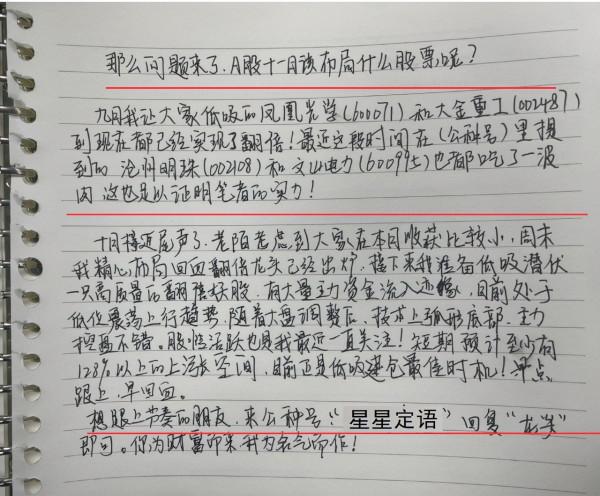 那么问题来了.A股十一月该布局什么股票呢？
九月我让大家低吸的凤凰光学(600071)和大金重工(002487)
到现在都已经实现了翻倍！最近这段时间在(公种号)里提
到的沧州明珠(002108)和文山电力(600995)也都吃了一波
肉 这也足以证明笔者的实力！
十月接近尾声了.老陌考虑到大家在本月收获比较小，周末
我精心布局回血翻倍龙头已经出炉.接下来我准备低吸潜伏
一只高质量的翻倍妖股.有大量主力资金流入迹象.目前处于
低位震荡上行趋势.随着大盘调整后.技术上弧形底部.主力
控盘不错。股性活跃也是我最近一直关注！短期预计至少有
128%以上的上涨空间，目前正是低吸建仓最佳时机！早点
跟上.早回血。
想跟上节奏的朋友.来公种号:“星星定语”回复“龙头”
即可。你为财富而来.我为名气而作！